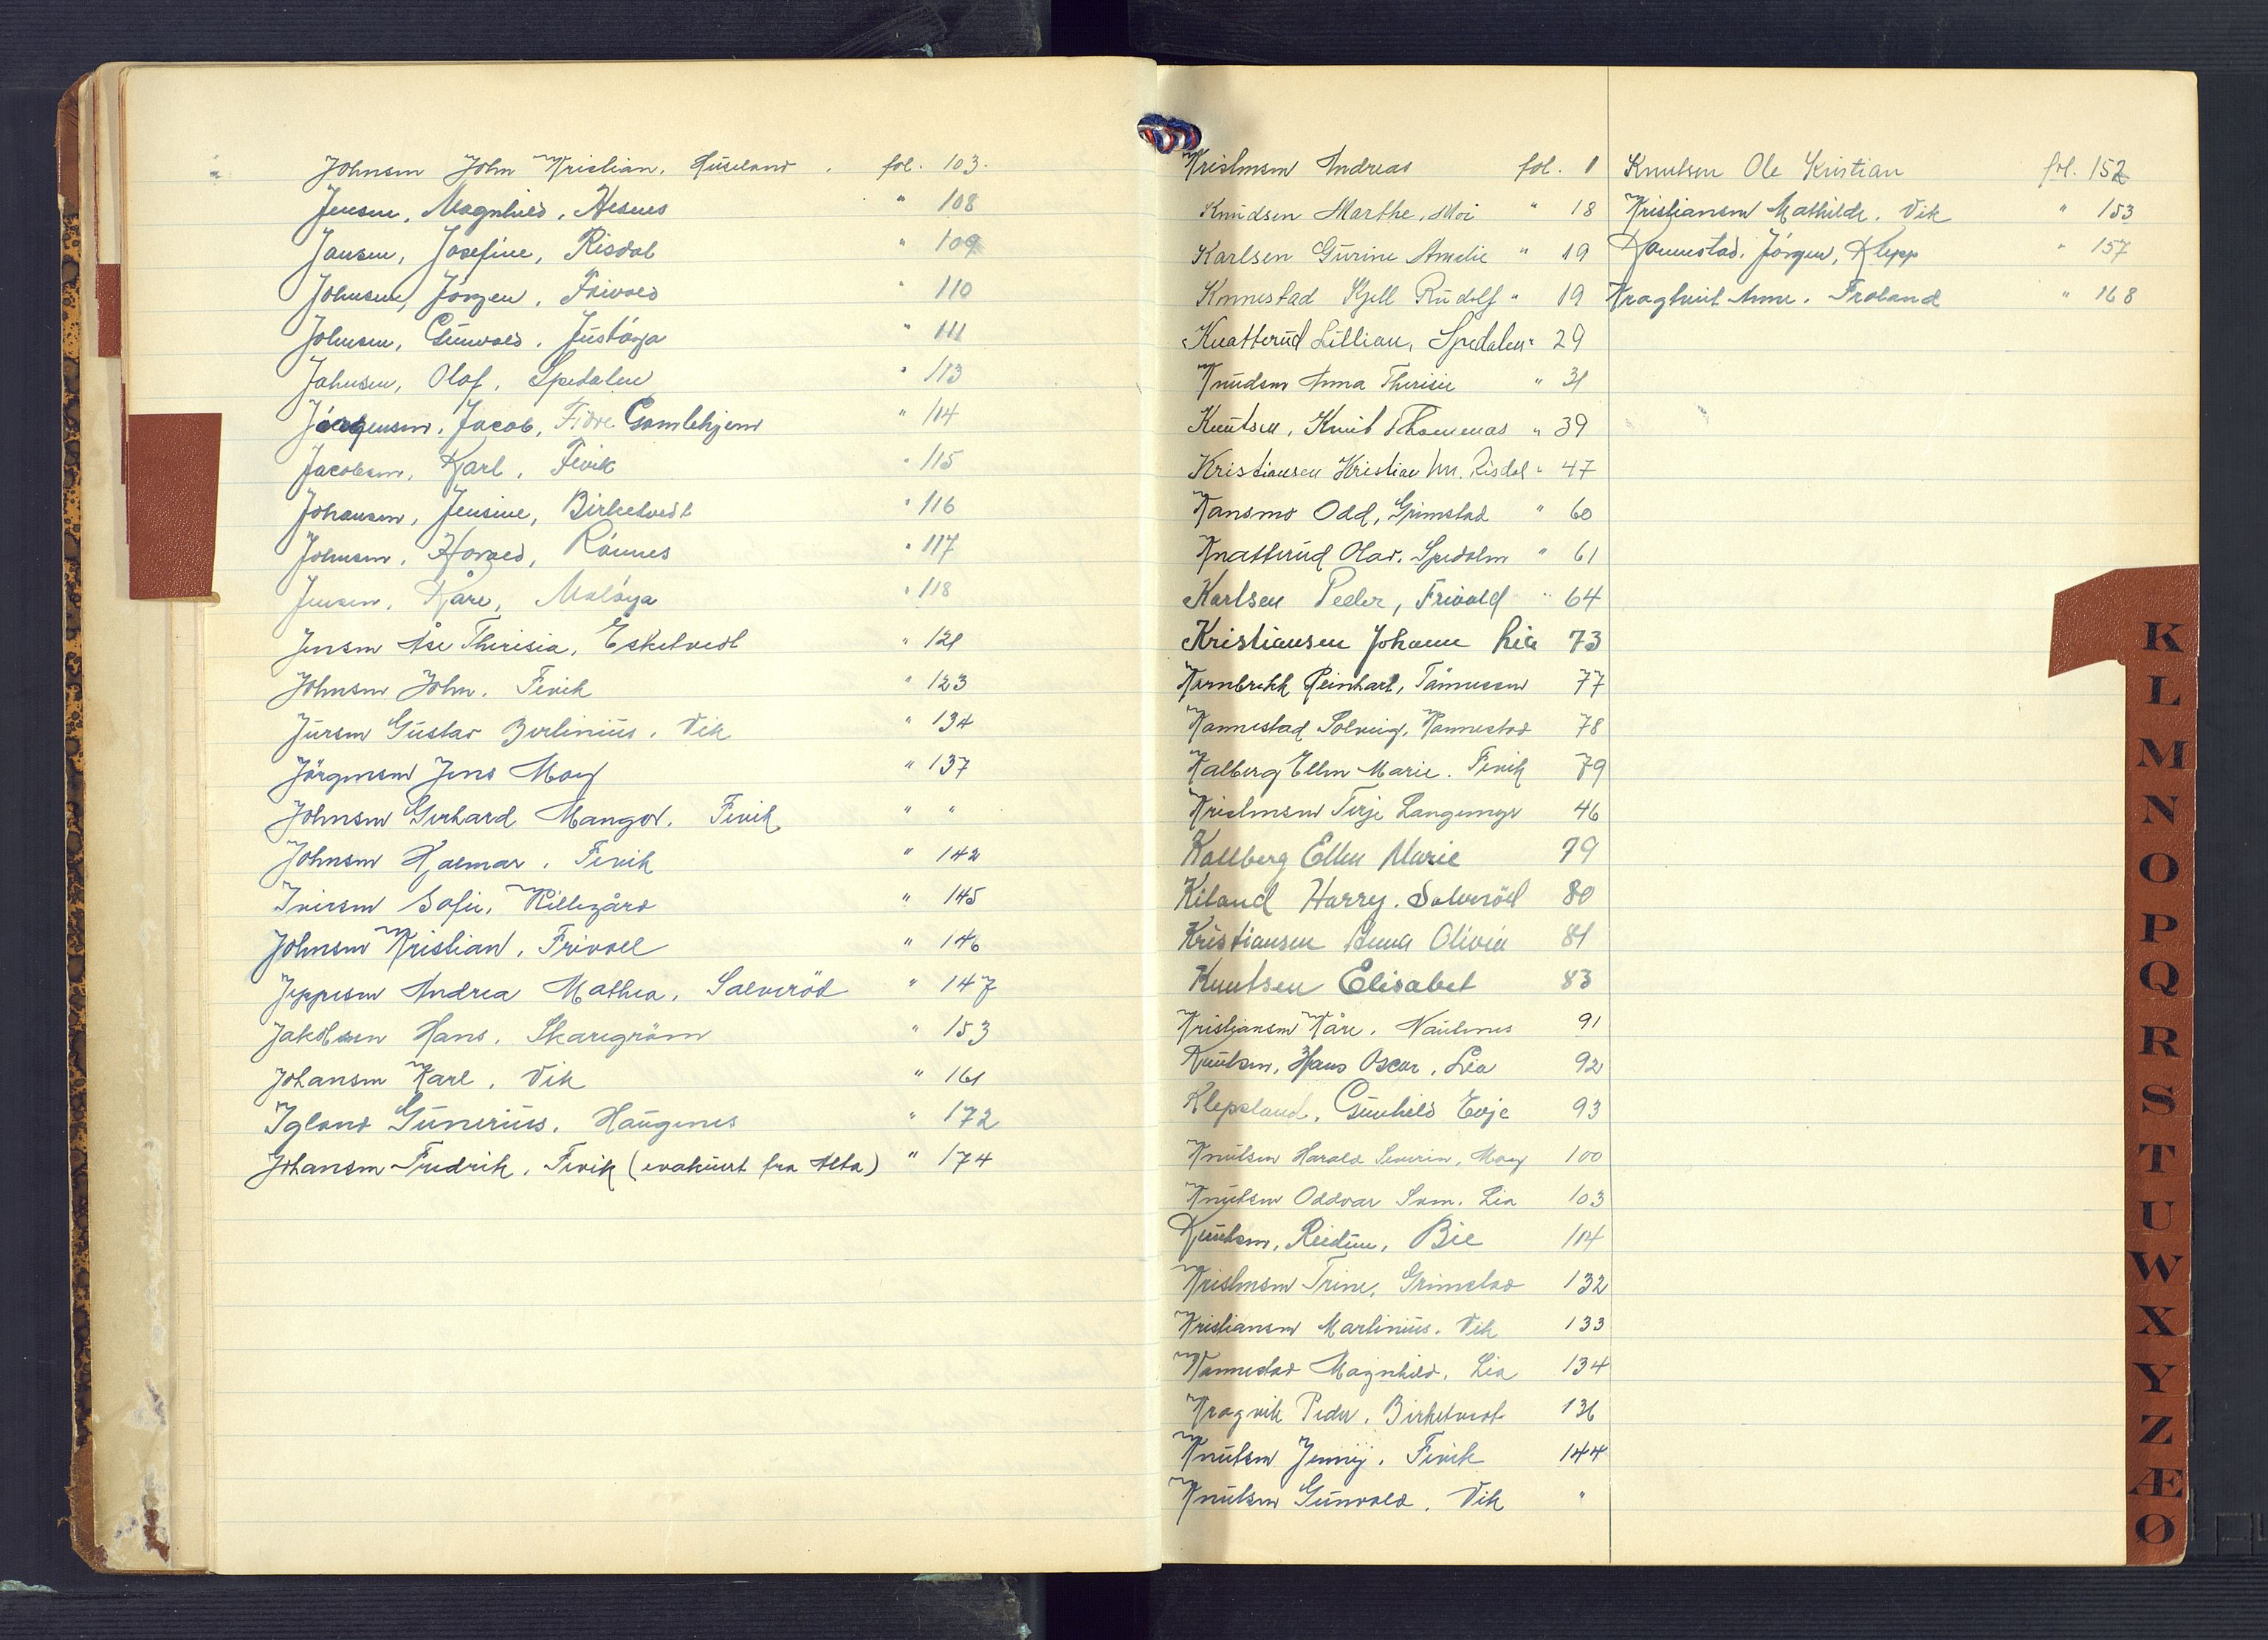 Johnsen John Kristian, Huseland. fol. 103.
Jensen, Magnhild, Hesnes " 108
Jansen, Josefine, Risdal " 109
Johnsen, Jörgen, Frivold " 110
Johnsen, Gunvald, Justöya " 111
Johnsen, Olaf, Spedalen " 113
Jörgensen, Jacob, Fjære Gamlehjem " 114
Jacobsen, Karl, Fevik " 115
Johansen, Jensine, Birketvedt " 116
Johnsen, Harald, Rönnes " 117
Jensen, Kåre, Malöya " 118
Jensen Åse Theresia, Esketvedt " 121
Johnsen John. Fevik " 123
Jursen Gustav Berlinius. Vik " 134
Jörgensen Jens Moey " 137
Johnsen Gerhard Mangor. Fevik " "
Johnsen Hjalmar. Fevik " 142
Iversen Sofie, Killegård " 145
Johnsen Kristian, Frivoll " 146
Jeppesen Andrea Mathea, Salveröd " 147
Jakobsen Hans, Skaregröm " 153
Johansen Karl, Vik " 161
Igland Gunerius, Haugenes " 172
Johansen Fredrik. Fevik (evakuert fra Alta) " 174
Kristensen Andreas fol. 1
Knudsen Marthe, Moi " 18
Karlsen Gurine Amelie " 19
Kannestad Kjell Rudolf " 19
Knatterud Lillian, Spedalen " 29
Knudsen Anna Theresie " 31
Knutsen, Knut Thommas " 39
Kristiansen Kristian M. Risdal " 47
Kansmo Odd, Grimstad " 60
Knatterud Olav, Spedalen " 61
Karlsen Peder, Frivold " 64
Kristiansen Johanne Lia 73
Kornbrekk Reinhart, Tönnessen 77
Kannestad Solveig, Kannestad 78
Kalberg Ellen Marie. Fevik 79
Kristensen Terje Langemyr 46
Kallberg Ellen Marie 79
Kiland Harry. Salveröd 80
Kristiansen Anna Olivia 81
Knutsen Elisabet 83
Kristiansen Kåre. Naudenes 91
Knutsen, Hans Oscar, Lia 92
Klepsland, Gunhild Evje 93
Knutsen Harald Severin, Moey 100
Knutsen Oddvar Svm. Lia 103
Knutsen, Reidun, Bie 114
Kristensen Trine, Grimstad 132
Kristiansen Martinius. Vik 133
Kannestad Magnhild, Lia 134
Kragvik Peder, Birketvedt 136
Knutsen Jenny. Fevik 144
Knutsen Gunvald. Vik "
Knutsen Ole Kristian fol. 152
Kristiansen Mathilde. Vik " 153
Kannestad, Jörgen, Klepp " 157
Kragtveit Anne. Froland " 168
K
L
M
N
O
P
Q
R
S
T
U
W
X
Y
Z
Æ
Ø